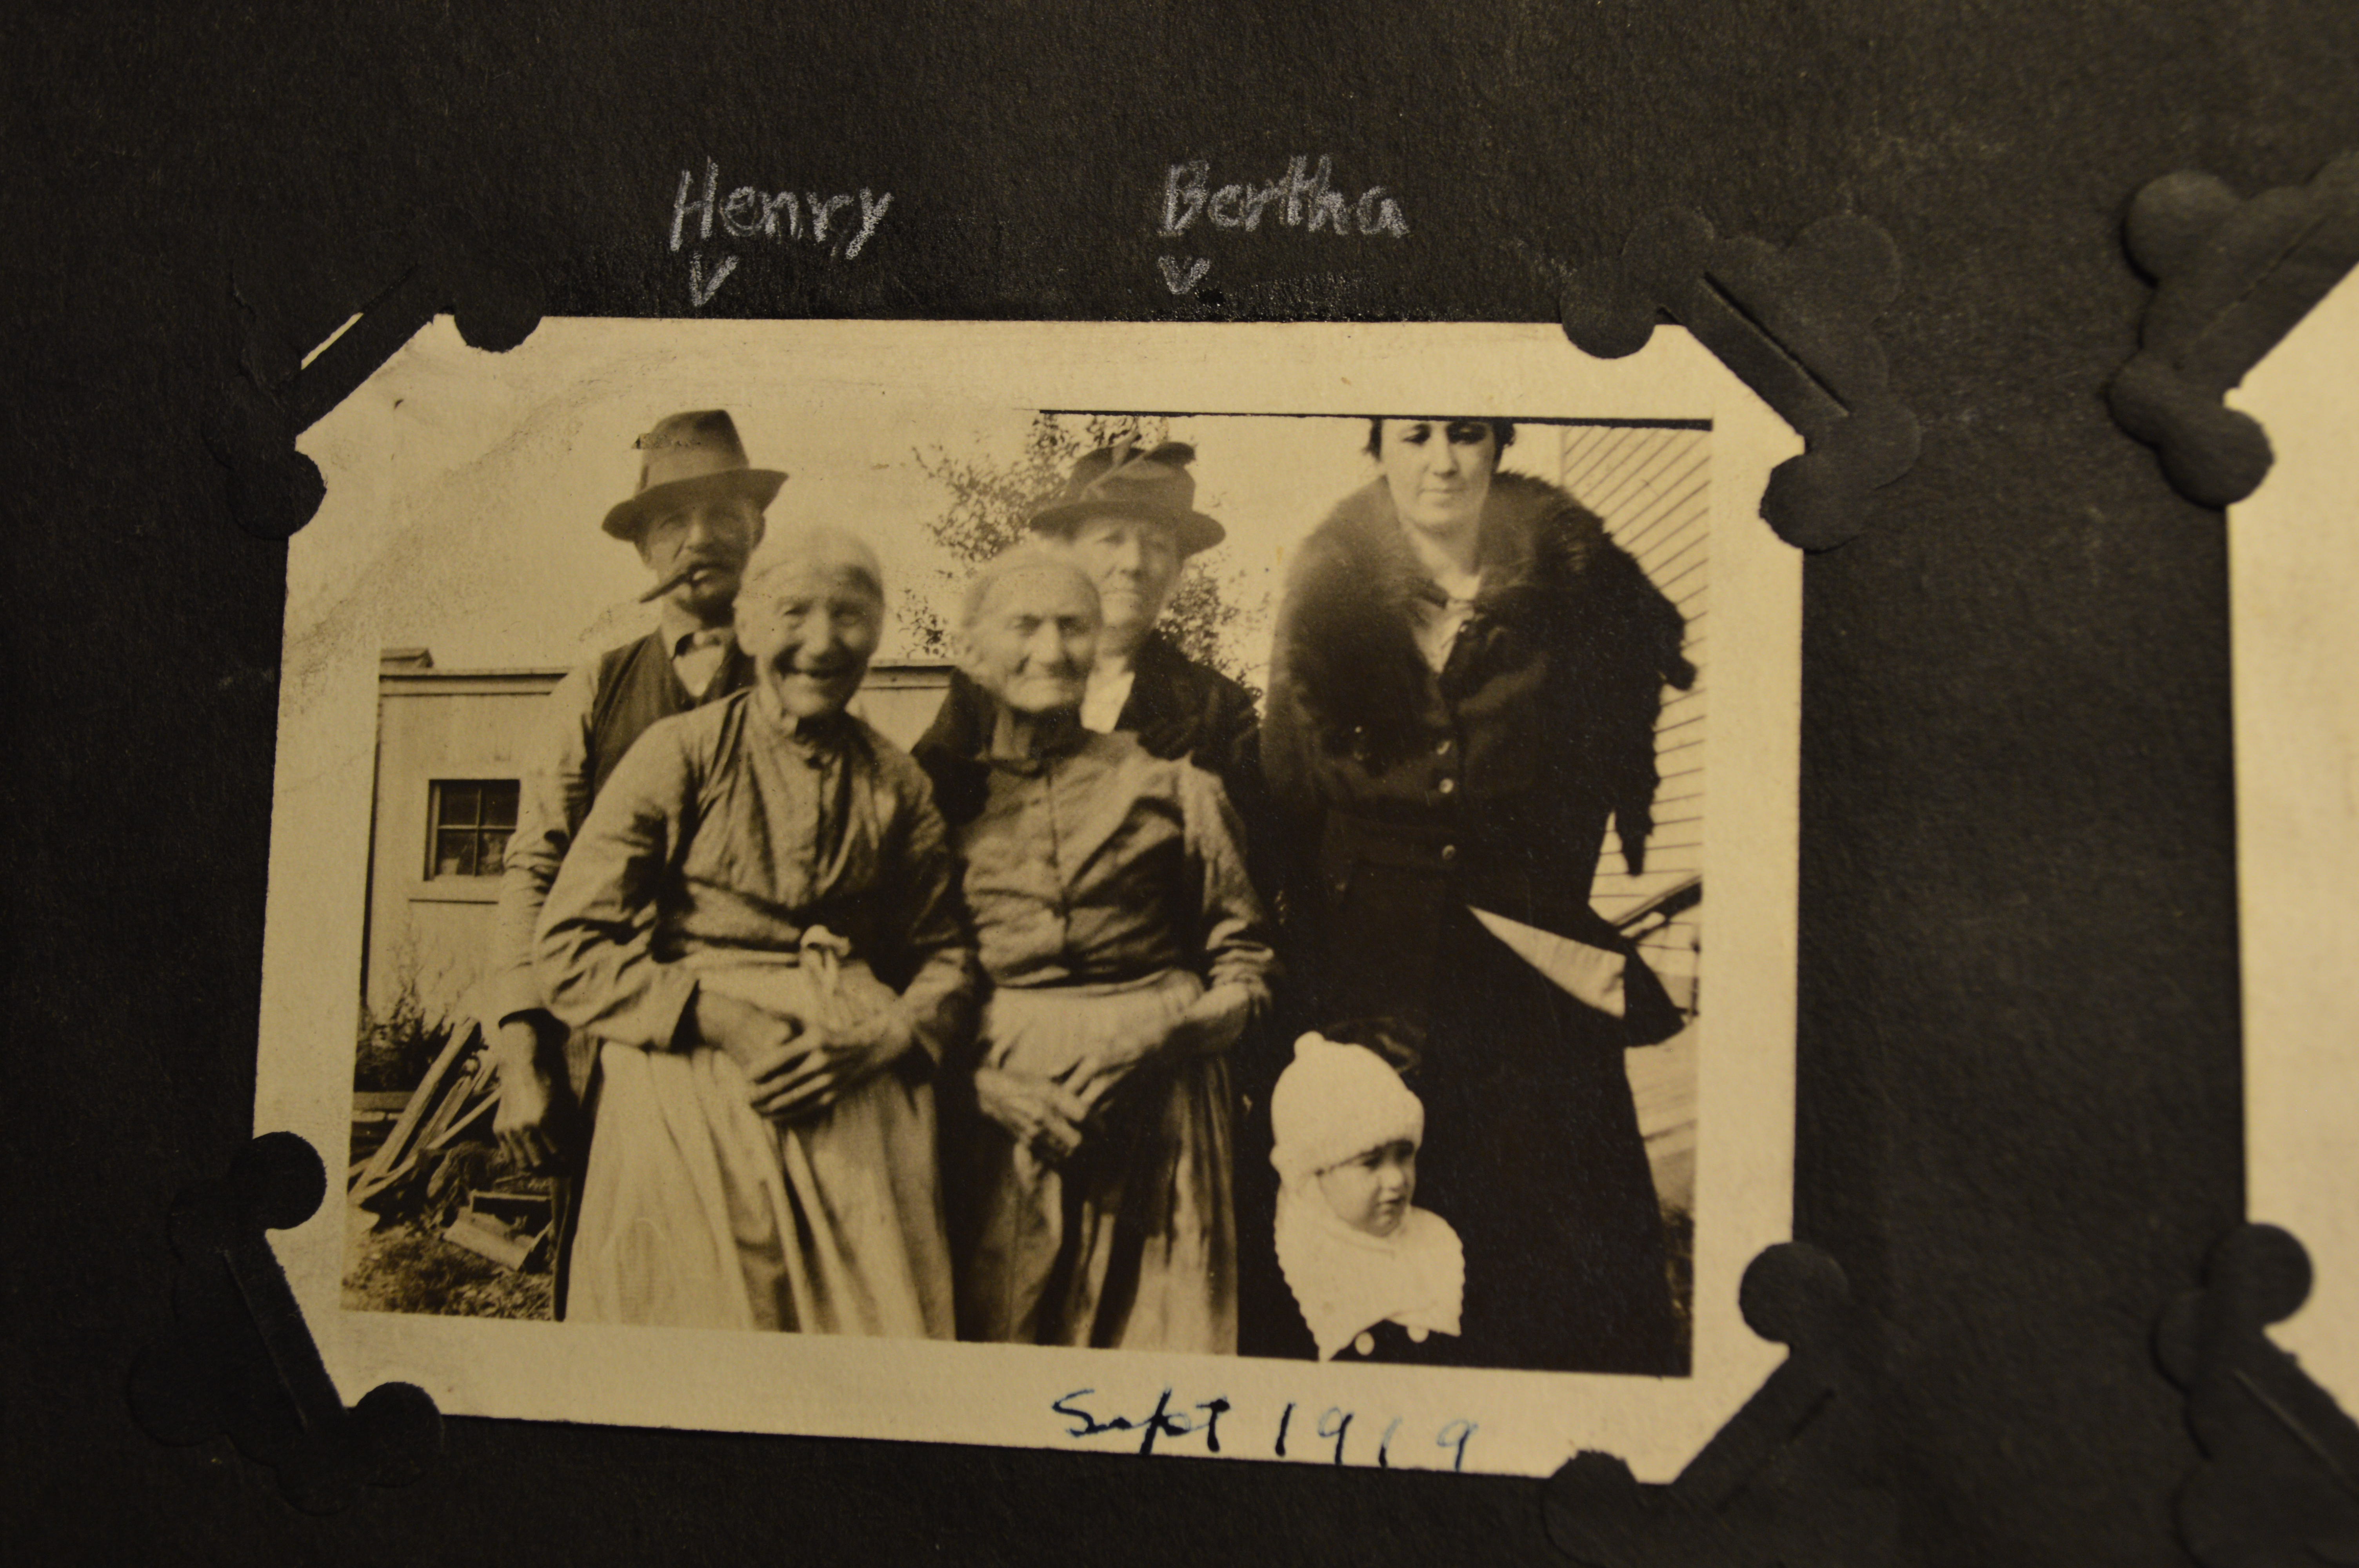 Henry Bertha
v v
Sept 1919